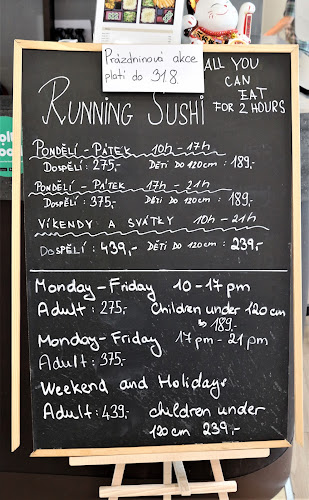 Prázdninová akce
platí do 31.8.
ALL YOU
CAN
EAT
FOR 2 HOURS
RUNNING SUSHI
PONDĚLÍ - PÁTEK 10h - 17h
DOSPĚLÍ : 275,- DĚTI DO 120cm : 189,-
PONDĚLÍ - PÁTEK 17h - 21h
DOSPĚLÍ : 375,- DĚTI DO 120cm : 189,-
VÍKENDY A SVÁTKY 10h - 21h
DOSPĚLÍ : 439,- DĚTI DO 120cm : 239,-
Monday - Friday 10 - 17 pm
Adult : 275,- Children under 120 cm
↳ 189,-
Monday - Friday 17 pm - 21 pm
Adult : 375,-
Weekend and Holidays
Adult : 439,- children under
120 cm 239,-